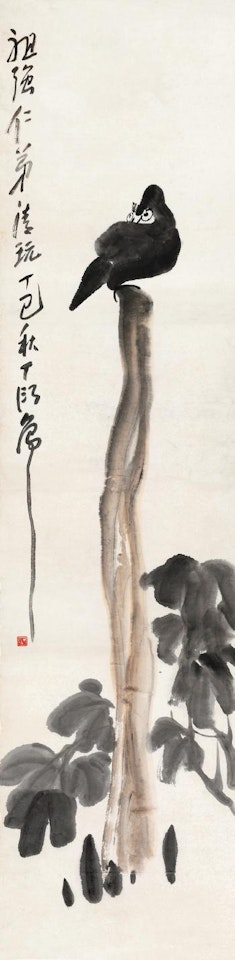 祖强仁弟清玩丁巳秋丁衍庸